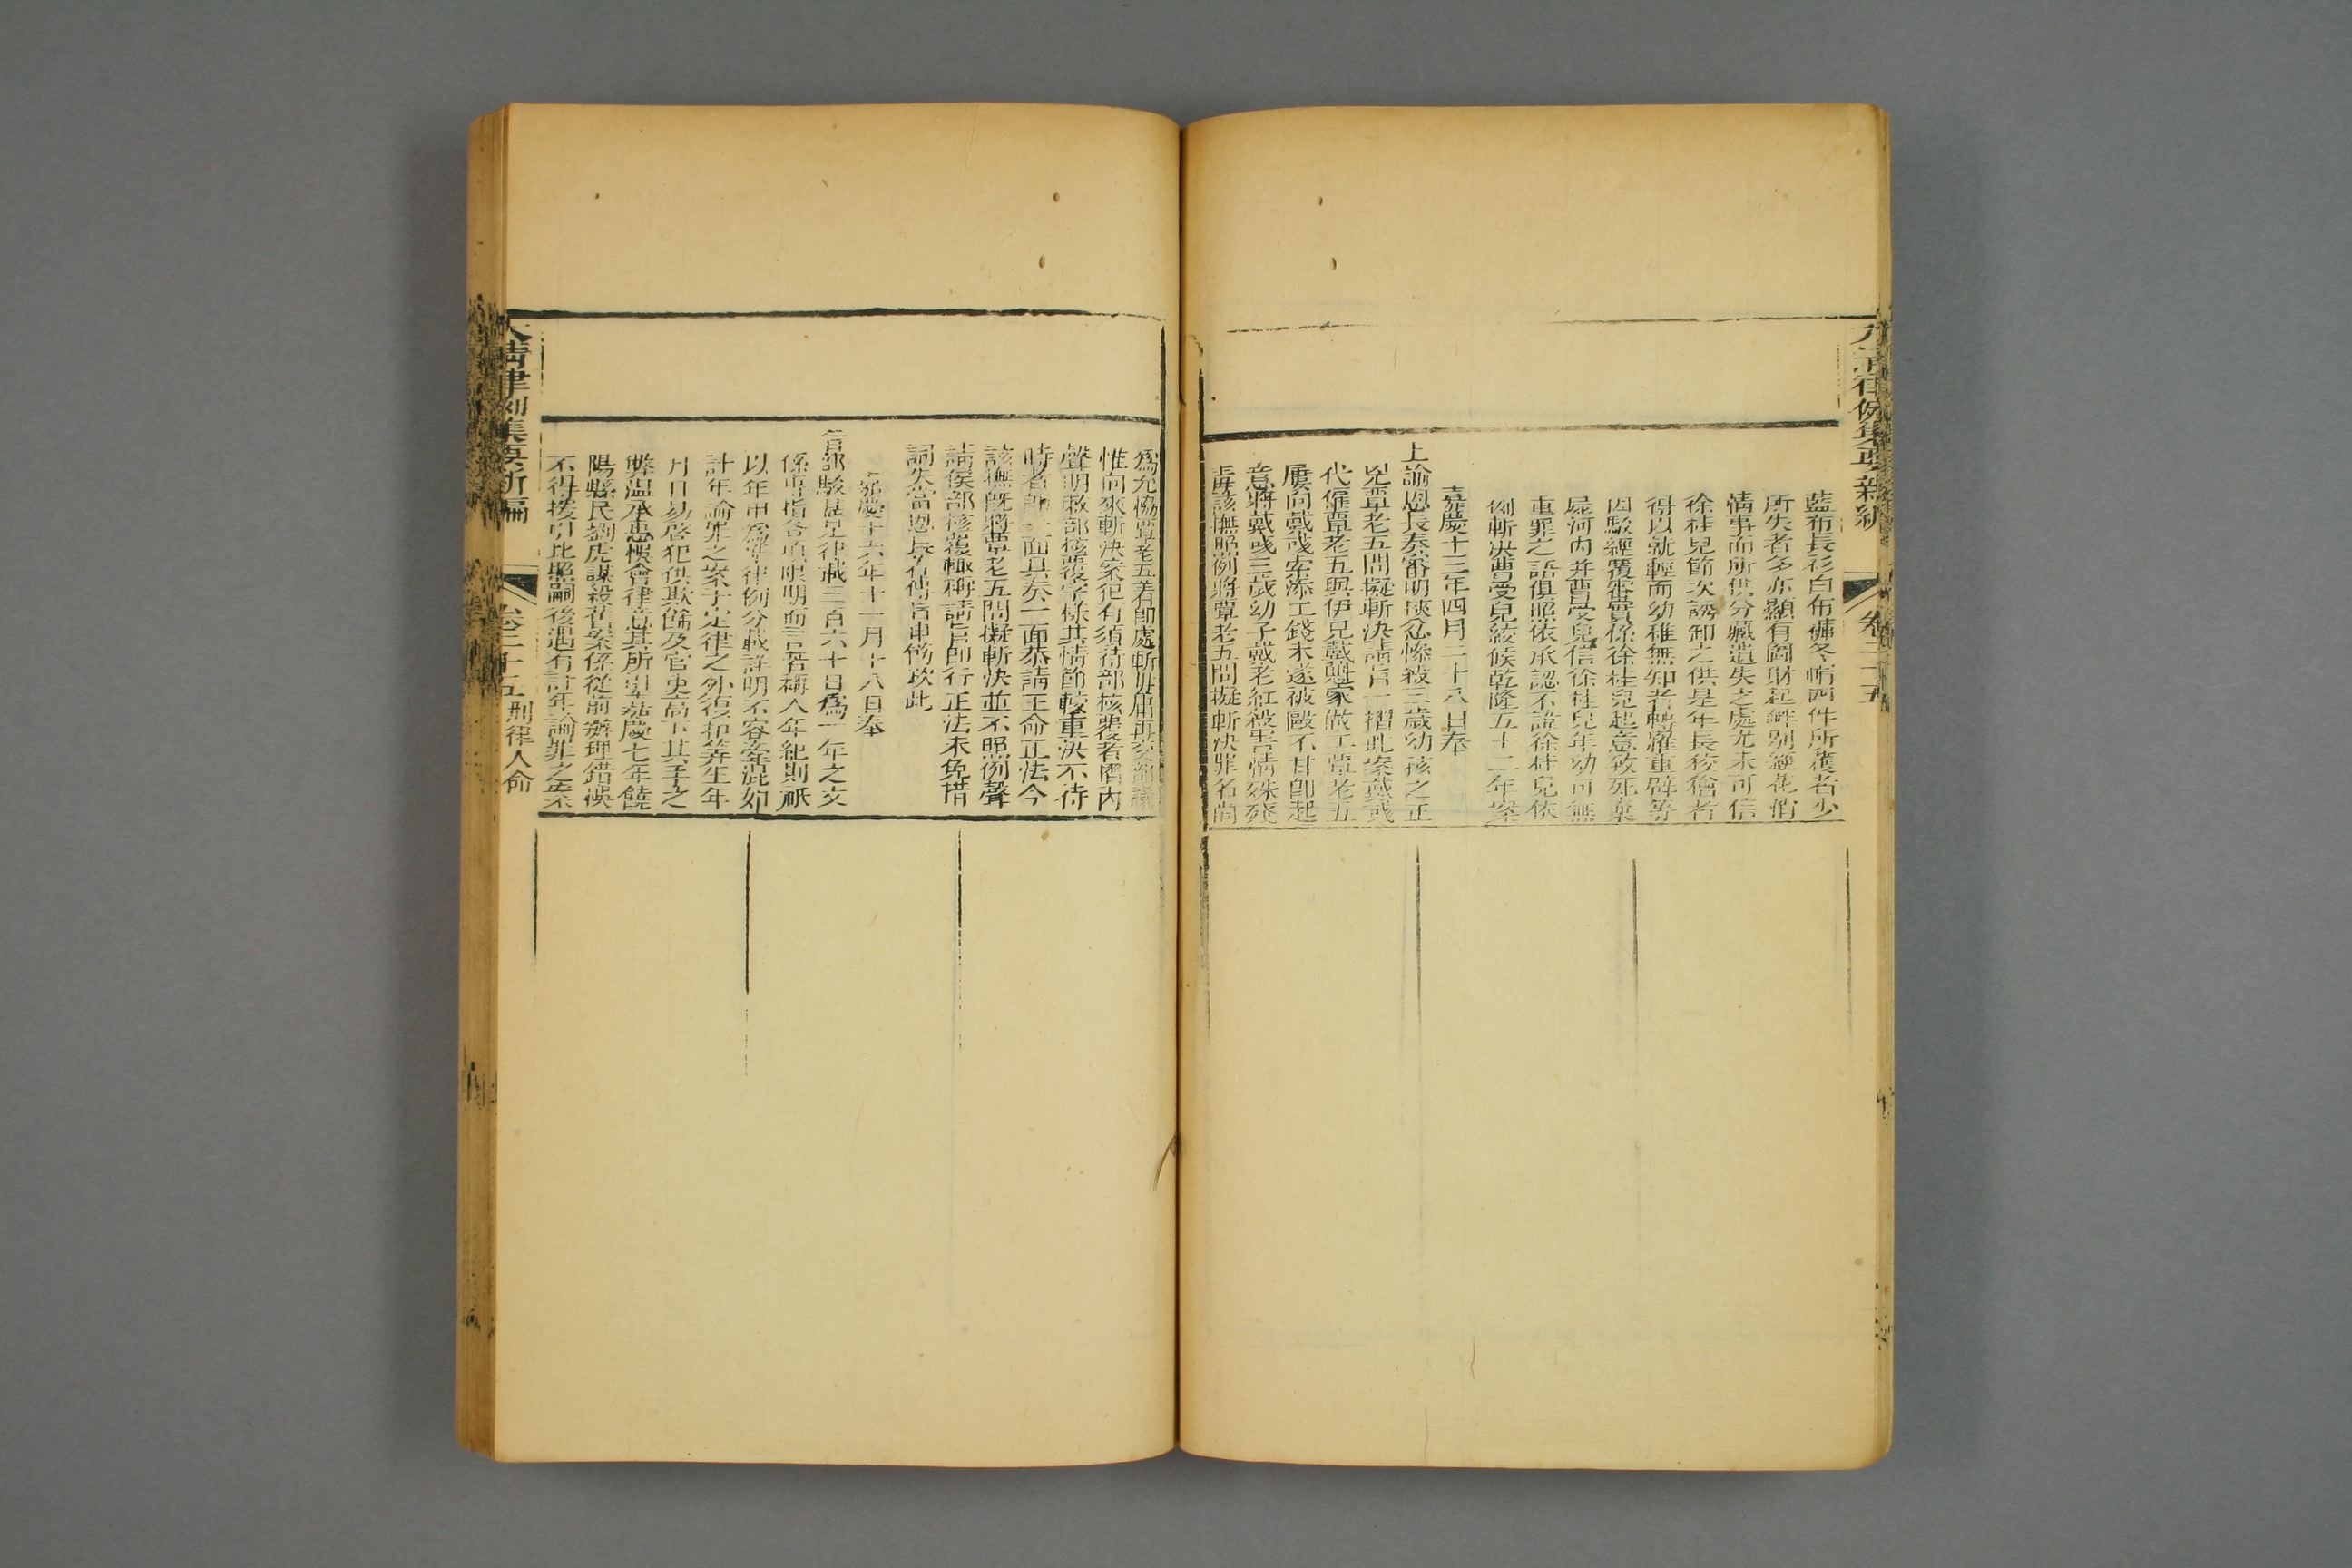 大清律例集要新編
卷二十五
藍布長衫白布褲冬帽四件所獲者少
所失者多亦顯有圖財起衅別經花消
情事而所供分藏遺失之處尤未可信
徐桂兒節次誘卸之供是年長狡獪者
得以就輕而幼稚無知者轉罹重辟等
因駁經覆審實係徐桂兒起意致死棄
屍河內并曹受兒信徐桂兒年幼可無
重罪之語俱照依承認不諱徐桂兒依
例斬決曹受兒絞候乾隆五十二年案
嘉慶十三年四月二十八日奉
上諭恩長奏審明挾忿慘殺三歲幼孩之正
兇覃老五問擬斬決請旨一摺此案戴彧
代僱覃老五與伊兄戴魁家做工覃老五
屢向戴彧索添工錢未遂被毆不甘卽起
意將戴彧三歲幼子戴老紅殺害情殊殘
毒該撫照例將覃老五問擬斬決罪名尚
為允協覃老五著卽處斬
惟向來斬決案犯有須待部核覆者摺內
聲明敕部核覆字樣其情節較重決不待
時者卽一面具奏一面恭請王命正法今
該撫旣將覃老五問擬斬決並不照例聲
請候部核覆輒稱請旨卽行正法未免措
詞失當恩長著傳旨申飭欽此
嘉慶十六年十一月十八日奉
旨部駁甚是律載三百六十日為一年之文
係專指各項限期而言若稱人年紀則祇
以年甲為準律例分載詳明不容牽混如
計年論罪之案于定律之外復扣算生年
月日易啓犯供欺飾及官吏高下其手之
弊溫承惠悞會律意其所引嘉慶七年饒
陽縣民劉虎謀殺舊案係從前辦理錯悞
不得援引比照嗣後遇有計年論罪之案
大清律例集要新編
卷二十五 刑律人命